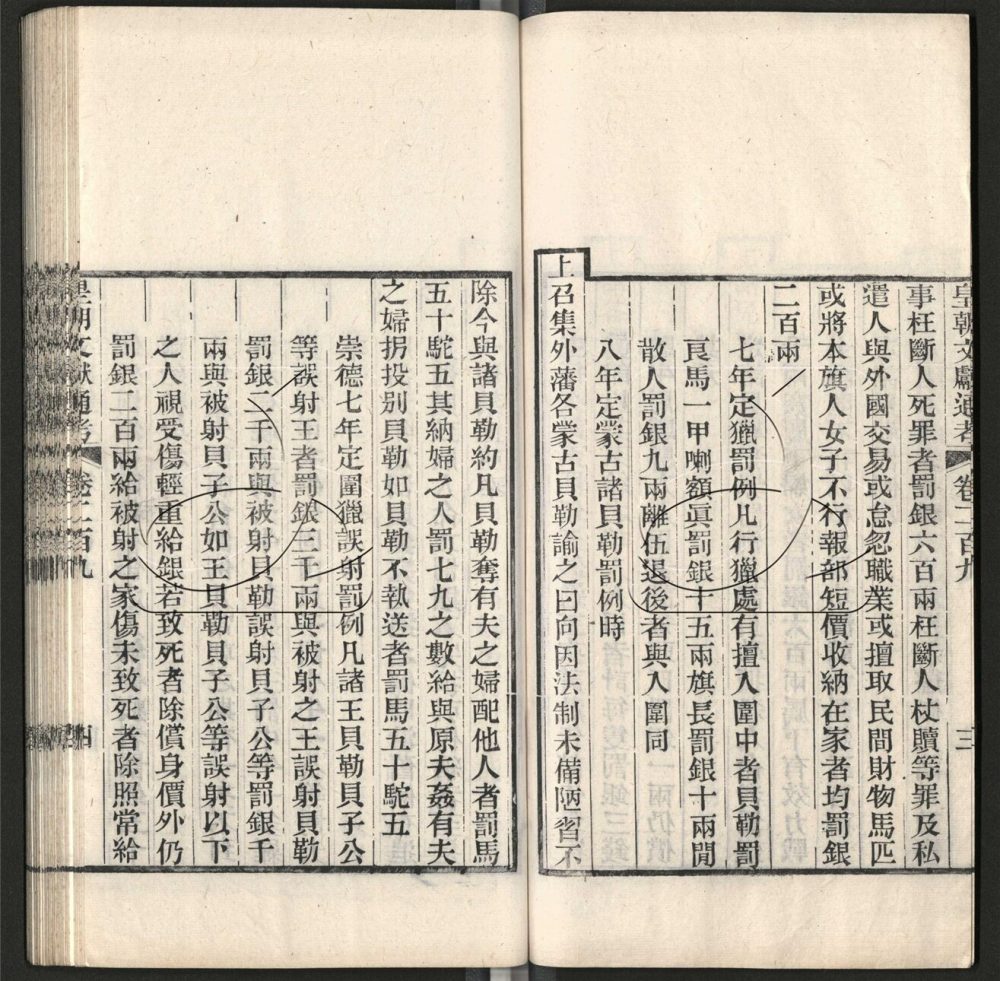 皇朝文獻通考 卷二百九 三
事枉斷人死罪者罰銀六百兩枉斷人杖贖等罪及私
遣人與外國交易或怠忽職業或擅取民間財物馬匹
或將本旗人女子不行報部短價收納在家者均罰銀
二百兩
七年定獵罰例凡行獵處有擅入圍中者貝勒罰
良馬一甲喇額眞罰銀十五兩旗長罰銀十兩閒
散人罰銀九兩離伍退後者與入圍同
八年定蒙古諸貝勒罰例時
上召集外藩各蒙古貝勒諭之曰向因法制未備陋習不
除今與諸貝勒約凡貝勒奪有夫之婦配他人者罰馬
五十駝五其納婦之人罰七九之數給與原夫姦有夫
之婦拐投别貝勒如貝勒不執送者罰馬五十駝五
崇德七年定圍獵誤射罰例凡諸王貝勒貝子公
等誤射王者罰銀三千兩與被射之王誤射貝勒
罰銀二千兩與被射貝勒誤射貝子公等罰銀千
兩與被射貝子公如王貝勒貝子公等誤射以下
之人視受傷輕重給銀若致死者除償身價外仍
罰銀二百兩給被射之家傷未致死者除照常給
皇朝文獻通考 卷二百九 四